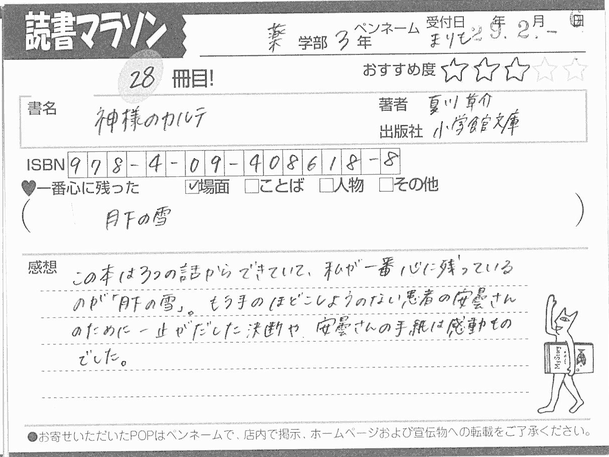 読書マラソン
薬 学部 3 年 ペンネーム まりも 受付日 29.2.- 年 月 日
28 冊目!
おすすめ度 ☆☆☆☆☆
書名 神様のカルテ
著者 夏川草介
出版社 小学館文庫
ISBN 978-4-09-408618-8
♥一番心に残った ☑場面 □ことば □人物 □その他
( 月下の雪 )
感想
この本は3つの話からできていて、私が一番心に残っている
のが「月下の雪」。もう手のほどこしようのない患者の安曇さん
のために一止がだした決断や、安曇さんの手紙は感動もの
でした。
●お寄せいただいたPOPはペンネームで、店内で掲示、ホームページおよび宣伝物への転載をご了承ください。